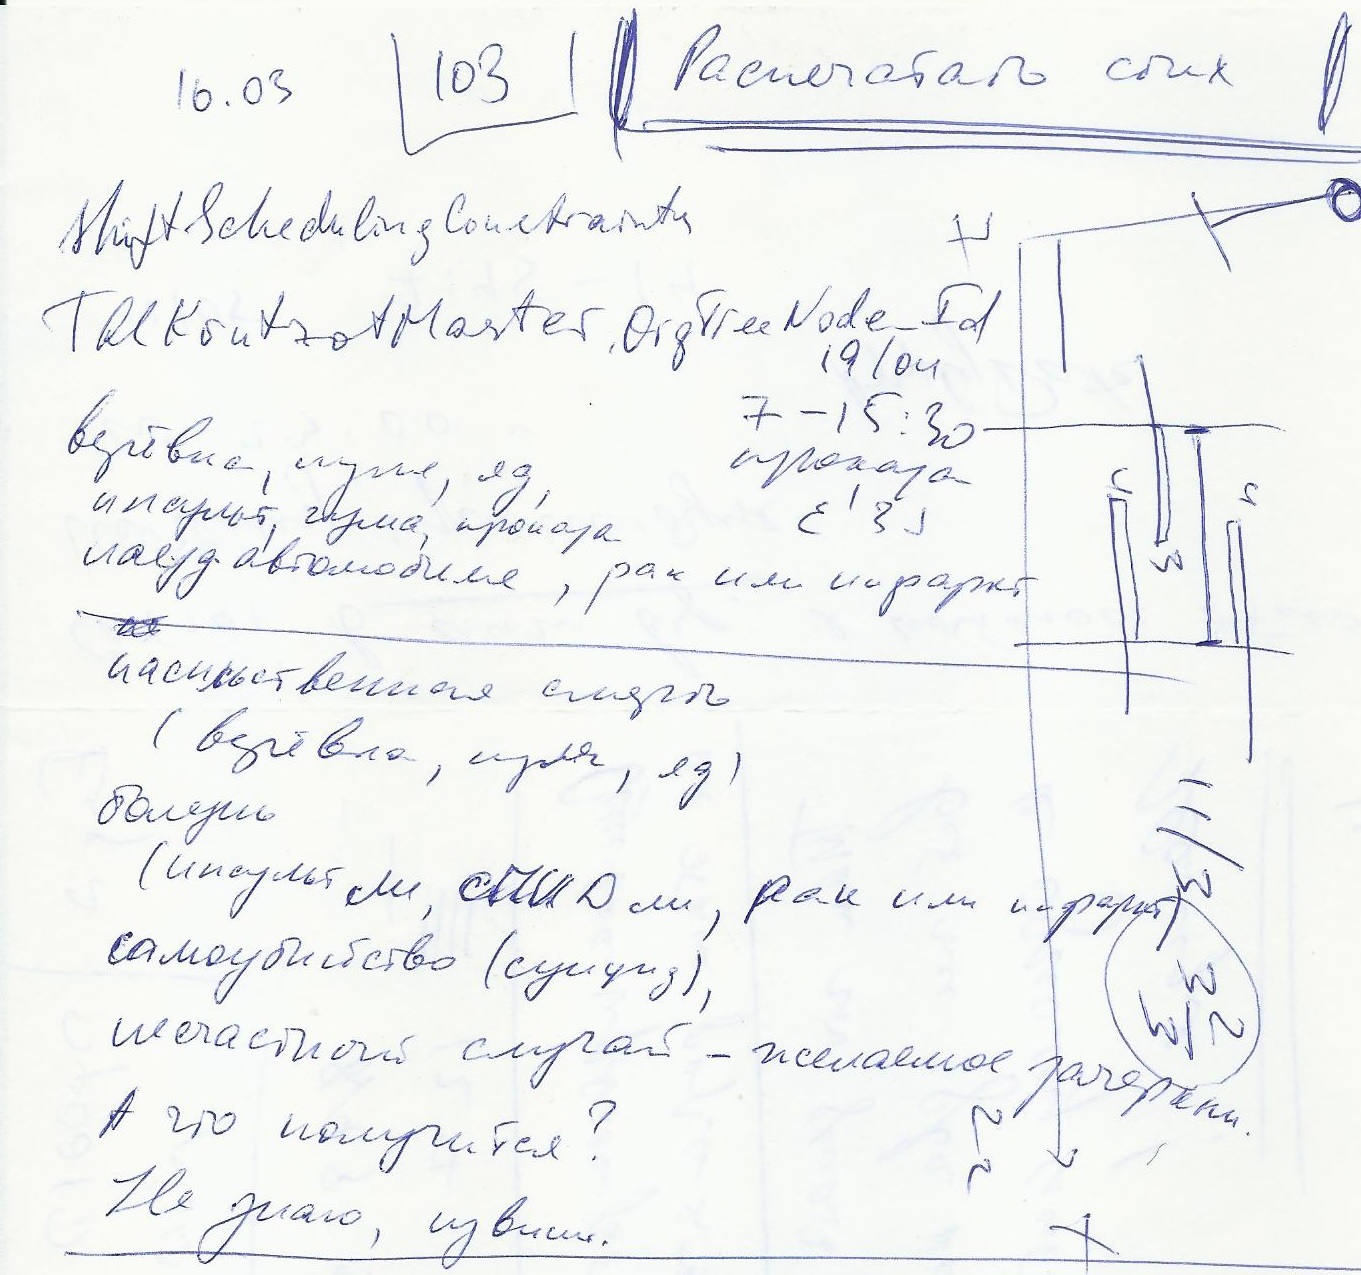 16.03 103 Распечатать стих
ShiftSchedulingConstraints
.OrgTreeNode_Id
19/04
7 – 15:30
верёвка, пуля, яд,
проказа
инсульт, чума, проказа
наезд автомобиля, рак или инфаркт
насильственная смерть
(верёвка, пуля, яд)
болезнь
(инсульт ли, СПИД ли, рак или инфаркт)
самоубийство (суицид),
несчастный случай – желаемое зачеркни.
А что получится?
Не знаю, извини.